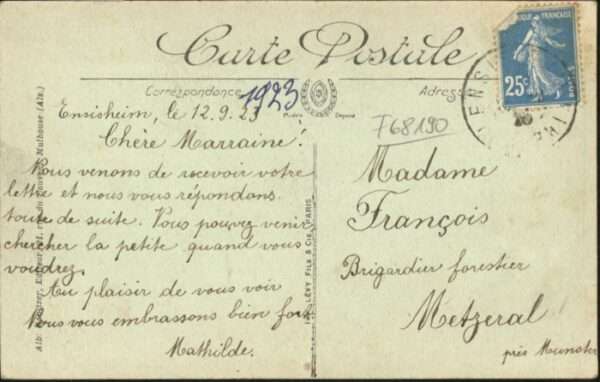 Carte Postale
Correspondance
Adresse
1923
Modèle Déposé
F68190
Ensisheim, le 12.9.23
Chère Marraine!
Nous venons de recevoir votre
lettre et nous vous répondons
toute de suite. Vous pouvez venir
chercher la petite quand vous
voudrez.
Au plaisir de vous voir
Nous vous embrassons bien fort
Mathilde.
Madame
François
Brigardier forestier
Metzeral
près Munster
LÉVY FILS & Cie, PARIS
Mulhouse (Als.)
25c
ENSI